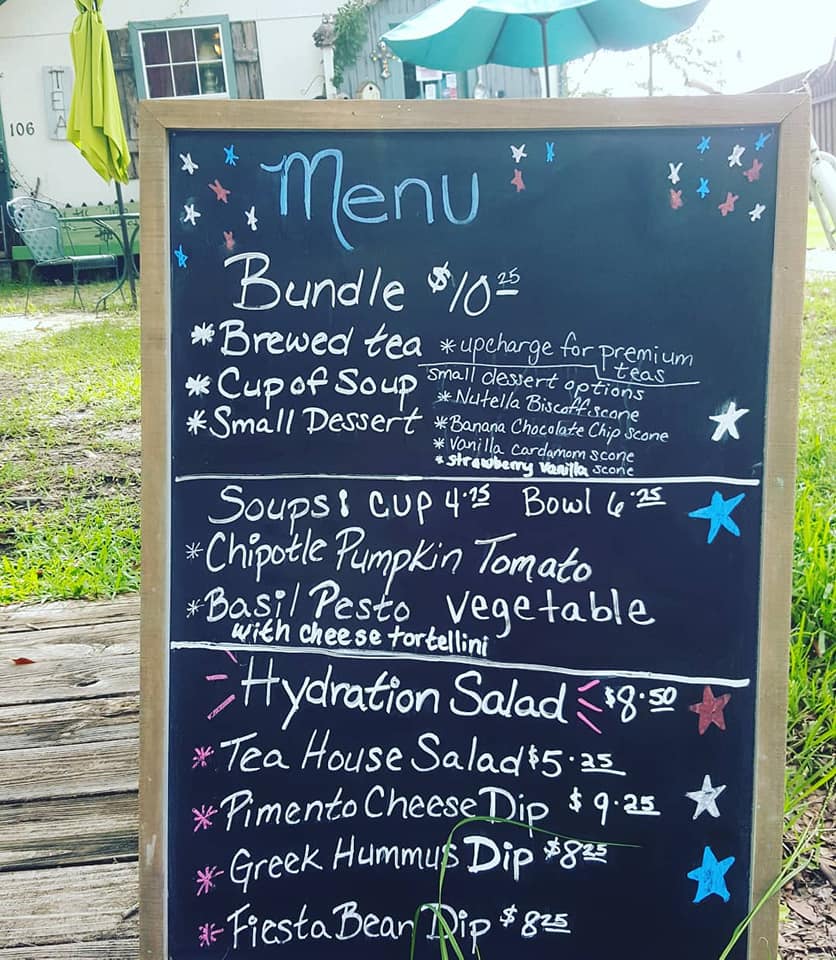 TEA
106
Menu
Bundle $10.25
*Brewed tea *upcharge for premium
teas
*Cup of Soup small dessert options
*Nutella Biscoff scone
*Small Dessert *Banana Chocolate Chip scone
*Vanilla Cardamom scone
*Strawberry Vanilla scone
Soups: Cup 4.25 Bowl 6.25
*Chipotle Pumpkin Tomato
*Basil Pesto Vegetable
with cheese tortellini
Hydration Salad $8.50
*Tea House Salad $5.25
*Pimento Cheese Dip $9.25
*Greek Hummus Dip $8.25
*Fiesta Bean Dip $8.25